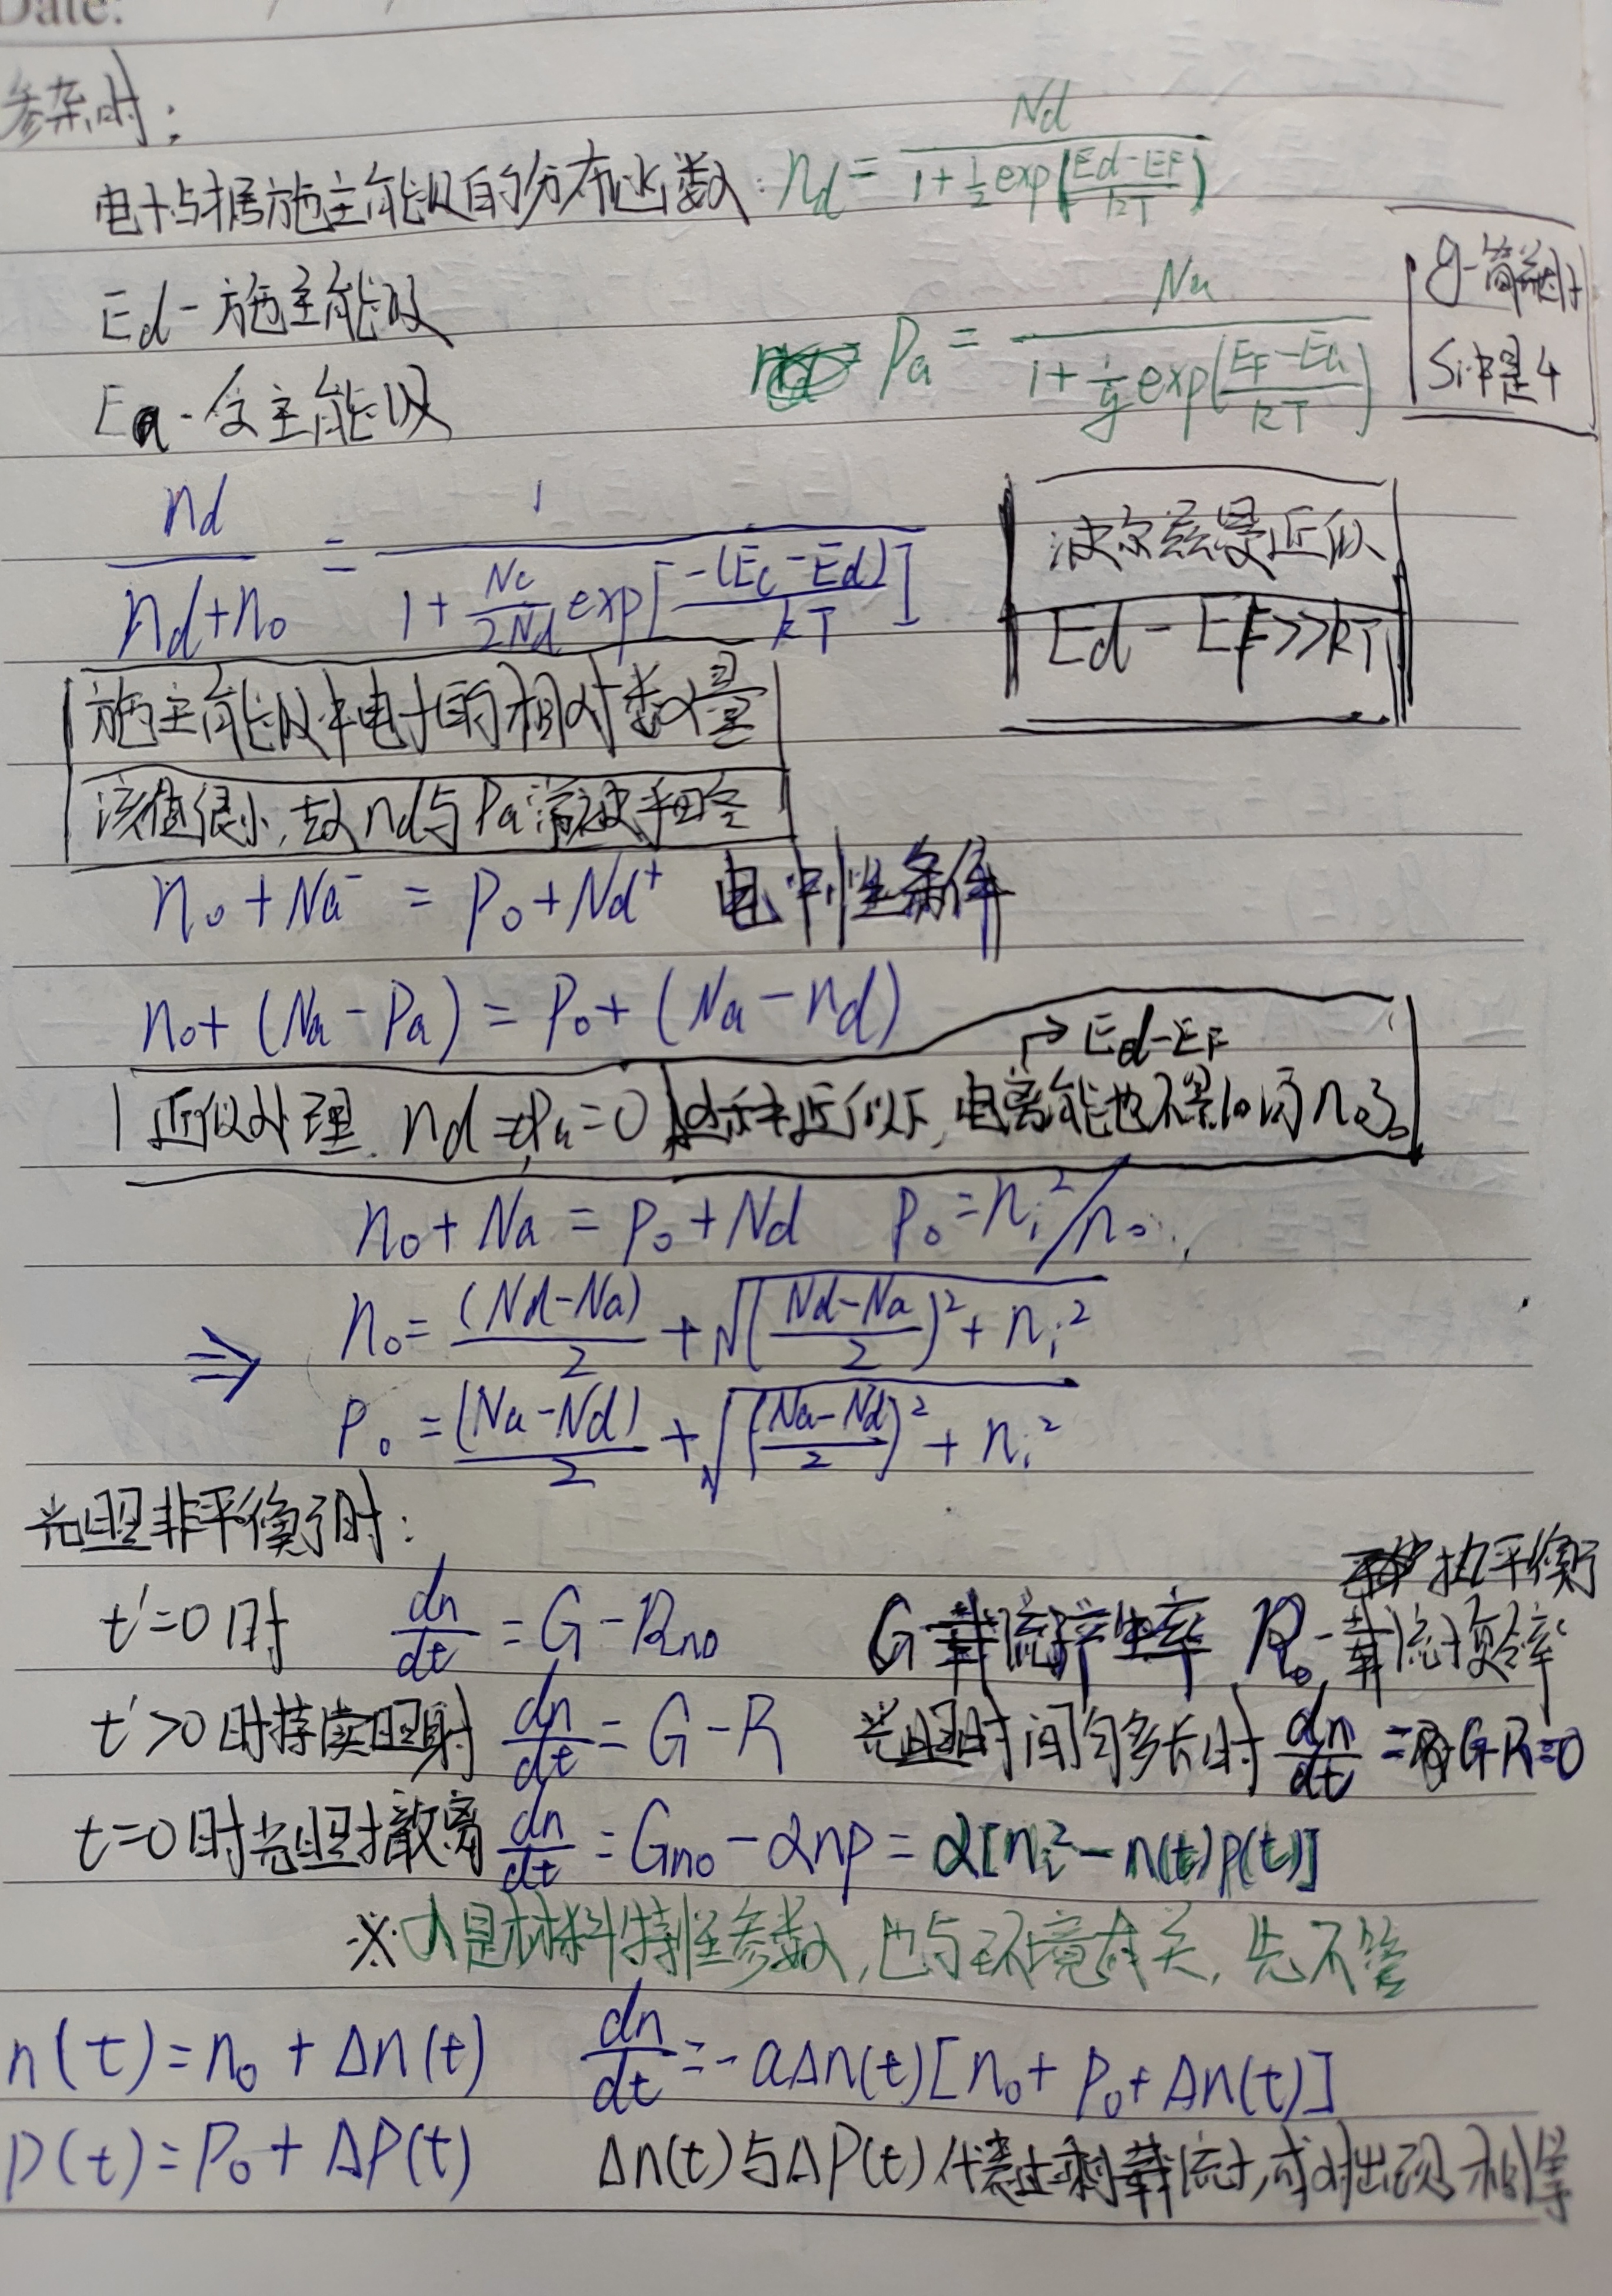 Date:
参杂时:
电子占据施主能级的分布函数: nd = Nd / (1 + 1/2 exp((Ed-EF)/kT))
Ed-施主能级
Pa = Na / (1 + 1/g exp((EF-Ea)/kT))
g-简并因子
Si中是4
Ea-受主能级
nd/(nd+n₀) = 1 / (1 + Nc/2Nd exp[-(Ec-Ed)/kT])
波尔兹曼近似
Ed-EF>>kT
施主能级中电子的相对数量
该值很小,故nd与Pa常被
n₀+Na⁻ = P₀+Nd⁺ 电中性条件
n₀+(Na-Pa) = P₀+(Na-nd)
→ Ed-EF
近似处理. nd=Pa=0 这种近似下,电离能也不影响n₀了。
n₀+Na = P₀+Nd P₀=nᵢ²/n₀
⇒ n₀= (Nd-Na)/2 + √((Nd-Na)/2)²+nᵢ²
P₀ = (Na-Nd)/2 + √((Na-Nd)/2)²+nᵢ²
光照非平衡时:
热平衡
t'=0时 dn/dt = G-Rn₀ G-载流子产生率 R₀-载流子复合率
t'>0时持续照射 dn/dt = G-R 光照时间够长时 dn/dt = G-R=0
t=0时光照撤离 dn/dt = Gn₀-αnp = α[nᵢ²-n(t)p(t)]
※α是材料特性参数,也与环境有关,先不管
n(t)=n₀+Δn(t) dn/dt=-aΔn(t)[n₀+P₀+Δn(t)]
P(t)=P₀+ΔP(t) Δn(t)与ΔP(t)代表过剩载流子,成对出现 相等